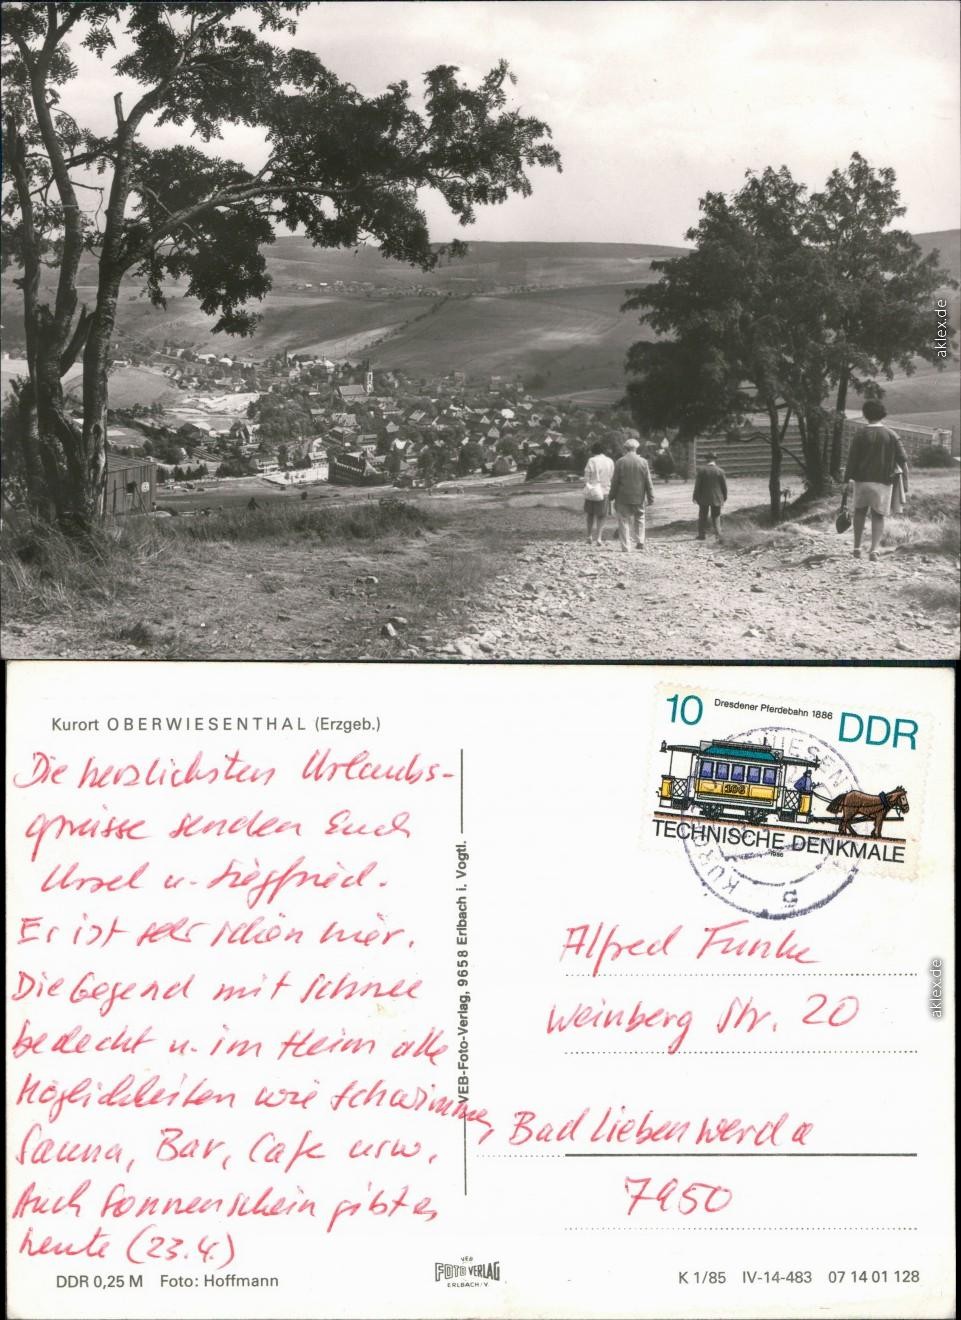 aklex.de
Kurort OBERWIESENTHAL (Erzgeb.)
Die herzlichsten Urlaubs-
grüsse senden Euch
Ursel u. Siegfried.
Er ist sehr schön hier.
Die Gegend mit Schnee
bedeckt u. im Heim alle
Möglichkeiten wie Schwimmen,
Sauna, Bar, Cafe usw.
Auch Sonnenschein gibt es
heute (23.4.)
DDR 0,25 M Foto: Hoffmann
VEB-Foto-Verlag, 9658 Erlbach i. Vogtl.
VEB
FOTO VERLAG
ERLBACH/V.
10 Dresdener Pferdebahn 1886 DDR
106
TECHNISCHE DENKMALE
1986
Alfred Funke
Weinberg Str. 20
Bad Liebenwerda
7950
K 1/85 IV-14-483 07 14 01 128
aklex.de